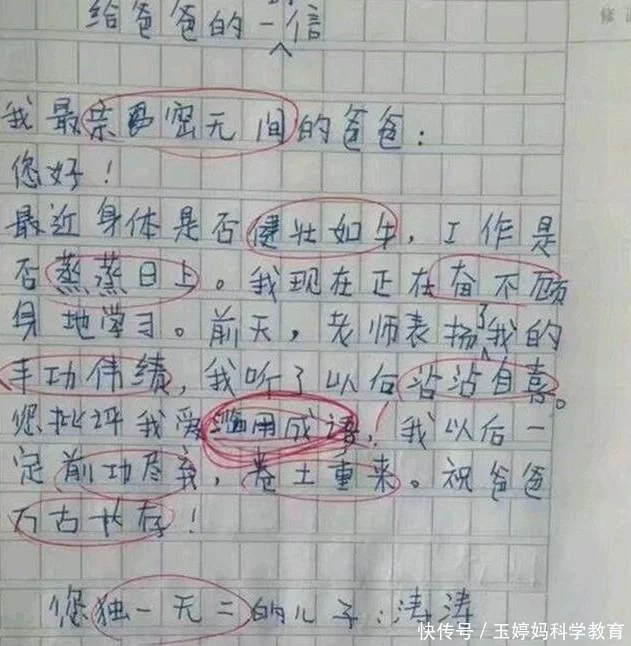 给爸爸的一信
我最亲密无间的爸爸：
您好！
最近身体是否健壮如牛，工作是
否蒸蒸日上。我现在正在奋不顾
身地学习。前天，老师表扬了我的
丰功伟绩，我听了以后沾沾自喜。
您批评我爱滥用成语，我以后一
定前功尽弃，卷土重来。祝爸爸
万古长存！
您独一无二的儿子：涛涛
快传号/玉婷妈科学教育